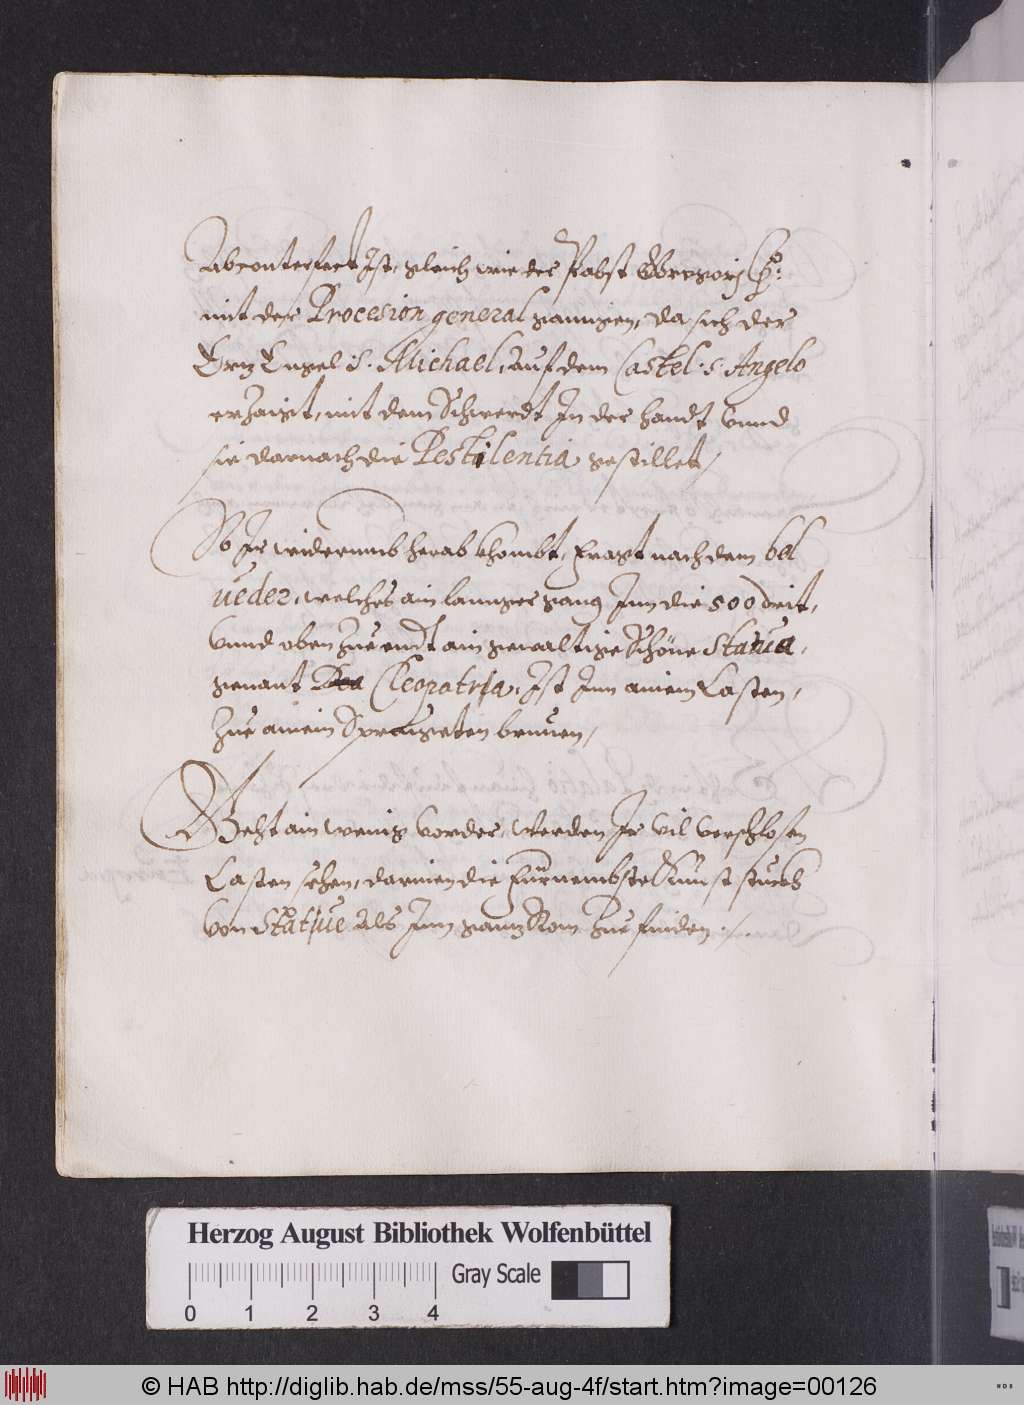 Abconterfeet Ist, gleich wie der Pabst Gregorj
mit der Procesion general ganngen, da sich der
Ertz Engel S. Michael, auf dem Castel: s: Angelo
erzaigt, mit dem Schwerdt In der handt Vnnd
sie darnach die Pestilentia gestillet,
So Ir widerumb herab khombt, Fragt nach dem bel
ueder, welches ain lannger gang Inn die 500 drit,
Vnnd oben Zue endt ain gewaltige Schöne Statua,
genant Cleopatria, Ist Inn ainem Casten,
Zue ainem brunen,
Geht ain wenig vorder, Werden Ir vil verschlosen
Casten sehen, darinen die Fürnembste Kunst stuckh
von Statue als Inn gantz Rom Zue finden
Herzog August Bibliothek Wolfenbüttel
Gray Scale
0 1 2 3 4
© HAB http://diglib.hab.de/mss/55-aug-4f/start.htm?image=00126